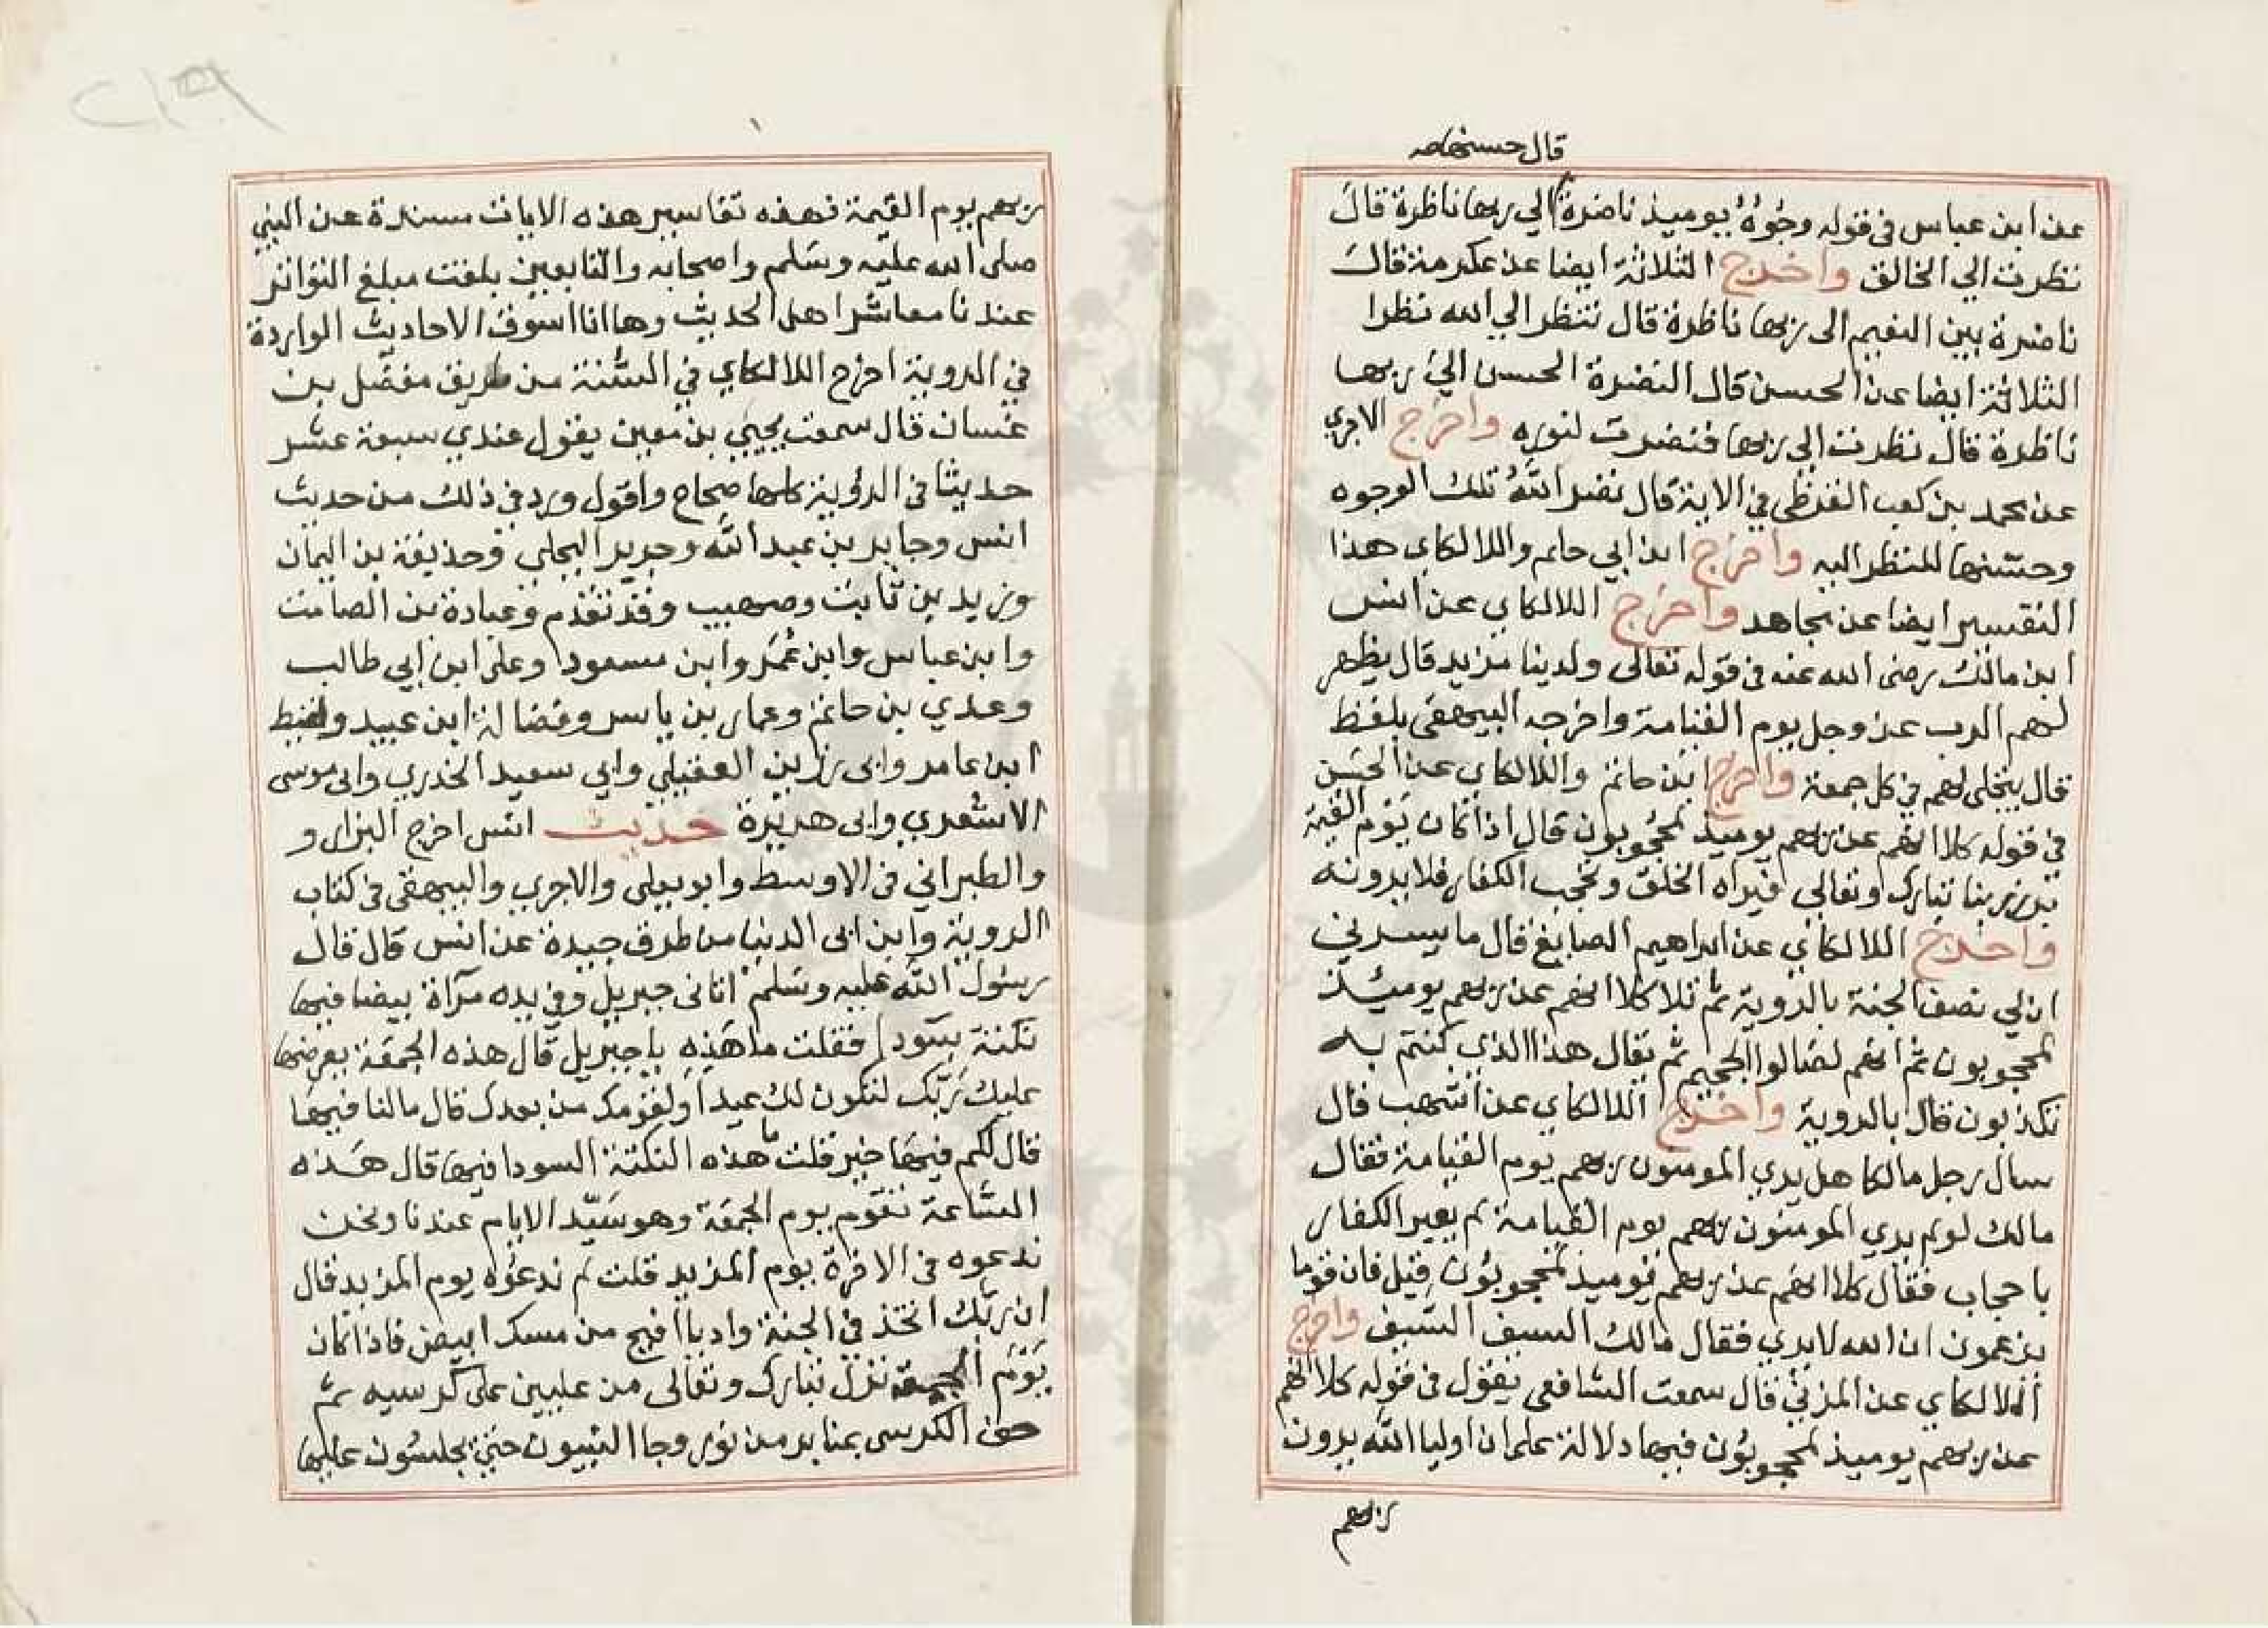 قال حسنها صح
عن ابن عباس في قوله وجُوهُ يوميذ ناضرة الي ربها ناظرة قال
نظرت الي الخالق واخرج الثلاثة ايضا عن عكرمة قال
ناضرة بين النعيم الى ربها ناظرة قال تنظر الي الله نظرا
الثلاثة ايضا عن الحسن قال النضرة الحسن اليٰ ربها
ناظرة قال نظرت الي ربها فنضرت لنوره واخرج الاجري
عن محمد بن كعب القرظي في الاية قال نضر اللهُ تلك الوجوه
وحسّنها للنظر اليه واخرج ابن ابي حاتم واللالكاي هذا
التفسير ايضا عن مجاهد واخرج اللالكاي عن انس
ابن مالك رضى الله عنه في قوله تعالى ولدينا مزيد قال يظهر
لهم الرب عز وجل يوم القيامة واخرجه البيهقى بلفظ
قال يتجلى لهم في كل جمعة واخرج ابن حاتم واللالكاي عن الحَسَن
في قوله كلا انهم عن ربهم يوميذ لمحجُوبون قال اذا كان يَوْم القيمة
برز ربنا تبارك وتعالى فيراه الخلق وتحجب الكفار فلا يرونه
واخرج اللالكاي عن ابراهيم الصايغ قال ما يسرني
ان لي نصف الجنة بالروية ثم تلا كلا انهم عن ربهم يوميئذ
لمحجوبون ثم انهم لصالوا الجحيم ثم يقال هذا الذي كنتم به
تكذبون قال بالروية واخرج اللالكاي عن اشهب قال
سال رجل مالكا هل يري المومنون ربهم يوم القيامة فقال
مالك لو لم يري المومنون ربهم يوم القيامة لم يعير الكفار
با حجاب فقال كلا انهم عن ربهم يوميذ لمحجوبُون قيل فان قوما
يزعمون ان الله لا يري فقال مالك السيف السّيف واخرج
اللالكاي عن المزني قال سمعت الشافعى يقول في قوله كلا انهم
عن ربهم يوميذ لمحجوبُون فيها دلالة على ان اوليا الله يرون
ربهم
ربهم يوم القيمة فهذه تفاسير هذه الايات مسندة عن النبي
صلى الله عليه وسَلم واصحابه والتابعين بلغت مبلغ التواتر
عندنا معاشر اهل الحديث وها انا اسوق الاحاديث الواردة
في الروية اخرج اللالكاي في السُّنة من طريق مفضّل بن
غسان قال سمعت يحيي بن معين يقول عندي سبعة عشر
حديثا في الرؤية كلها صحاح واقول ورد في ذلك من حديث
انس وجابر بن عبد الله وجرير البجلي وحذيفة بن اليمان
وزيد بن ثابت وصهيب وقد تقدم وعبادة بن الصامت
وابن عباس وابن عُمَر وابن مسعود وعلى ابن ابي طالب
وعدي بن حاتم وعمار بن ياسر وفضالة ابن عبيد ولقيط
ابن عامر وابى رزين العقيلي وابي سعيد الخدري وابى موسى
الاشعري وابى هريرة حديث انس اخرج البزار و
والطبراني في الاوسط وابو يعلي والاجري والبيهقى في كتاب
الروية وابن ابى الدنيا من طرق جيدة عن انس قال قال
رسول الله عليه وسَلم اتانى جبريل وفي يده مرآة بيضا فيها
نكتة سَودا فقلت ما هَذِهِ يا جبريل قال هذه الجمعة يعرضها
عليك رَبّك لتكون لك عيدا ولقومك من بعدك قال ما لنا فيها
قال لكم فيها خير قلت ما هذه النكتة السودا فيها قال هَذه
السَّاعة تقوم يوم الجمعة وهو سَيّد الايام عندنا ونحن
ندعوه في الاخرة يوم المزيد قلت لم ندعُوه يوم المزيد قال
ان ربّك اتخذ في الجنة واديا افيح من مسك ابيض فاذا كان
يَوْم الجمعة نزل تبارك وتعالى من عليين على كرسيه ثم
حف الكرسى بمنابر من نور وجا النبيون حتي يجلسُون عليها